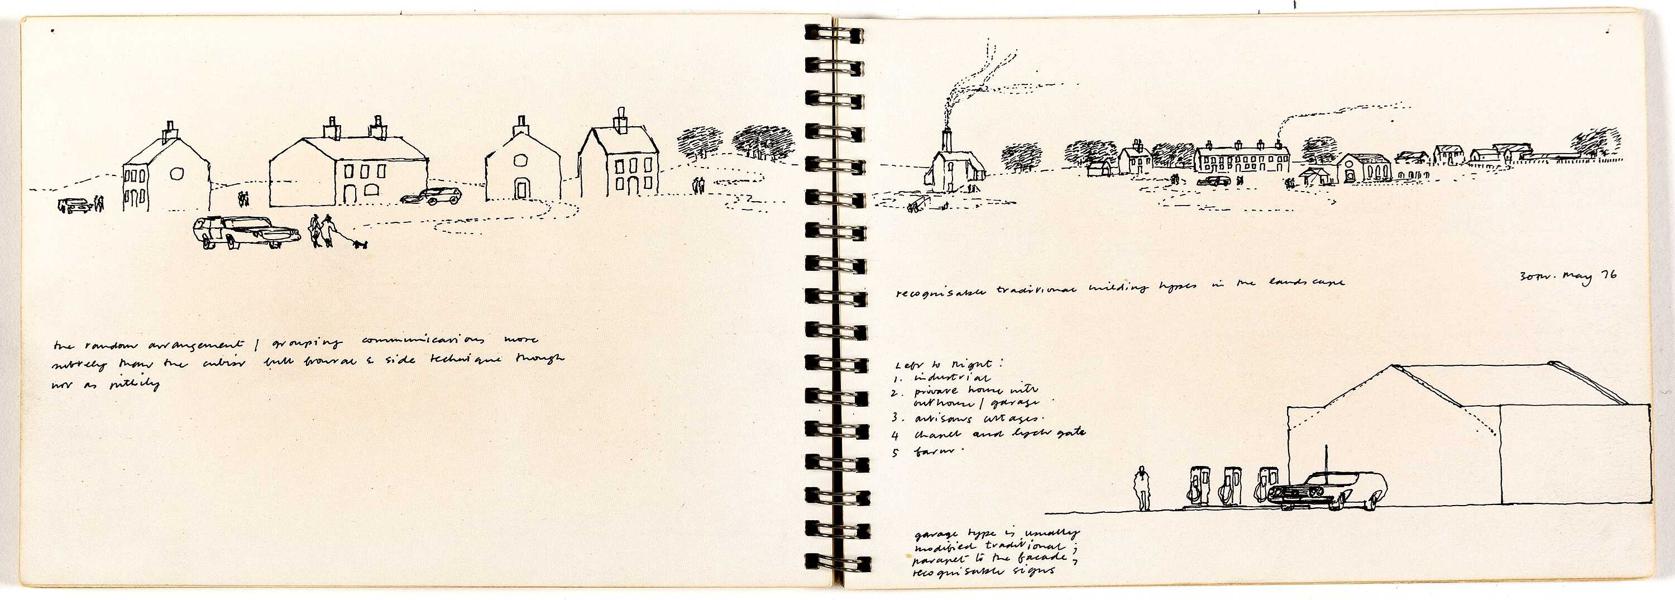 the random arrangement / grouping communications more
subtely than the cubist full frontal & side technique though
not as pithily
30th. May 76
recognisable traditional building types in the landscape
Left to Right :
1. industrial
2. private home with
outhouse / garage .
3. artisans cottages.
4 chapel and lych gate
5 farm .
garage type is usually
modified traditional ;
parapet to the facade ;
recognisable signs